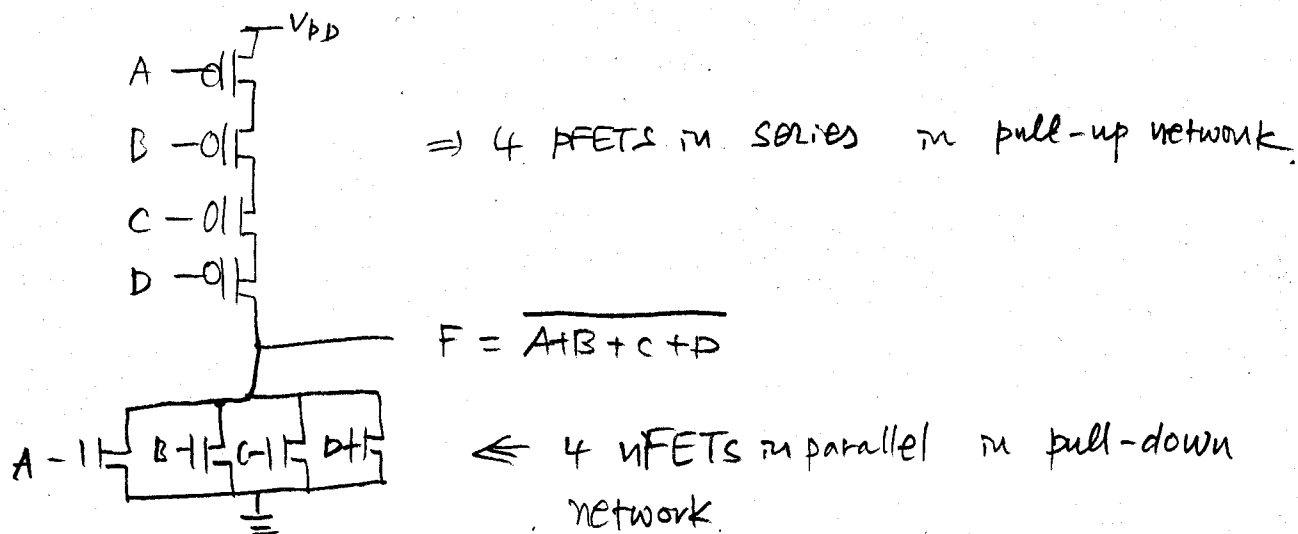 VDD
A
B
⇒ 4 pFETs in series in pull-up network.
C
D
F = \overline{A+B+C+D}
A B C D
⇐ 4 nFETs in parallel in pull-down
network.